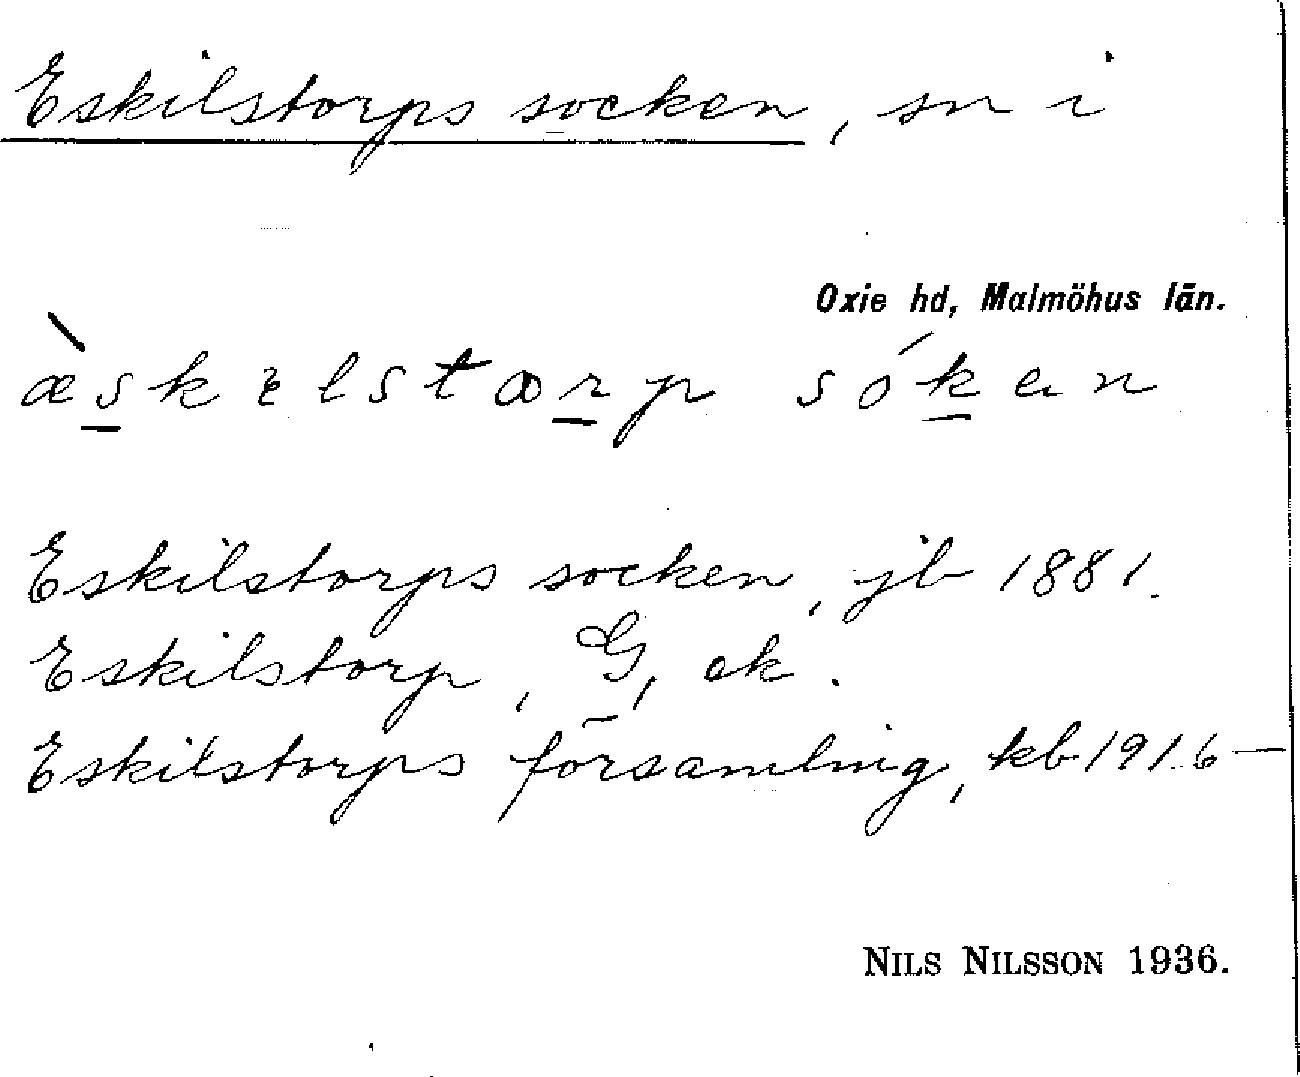 Eskilstorps socken, sn i
Oxie hd, Malmöhus län.
æskelstorp sókan
Eskilstorps socken, jb 1881.
Eskilstorp, G, ek.
Eskilstorps församling, kb 1916—
NILS NILSSON 1936.